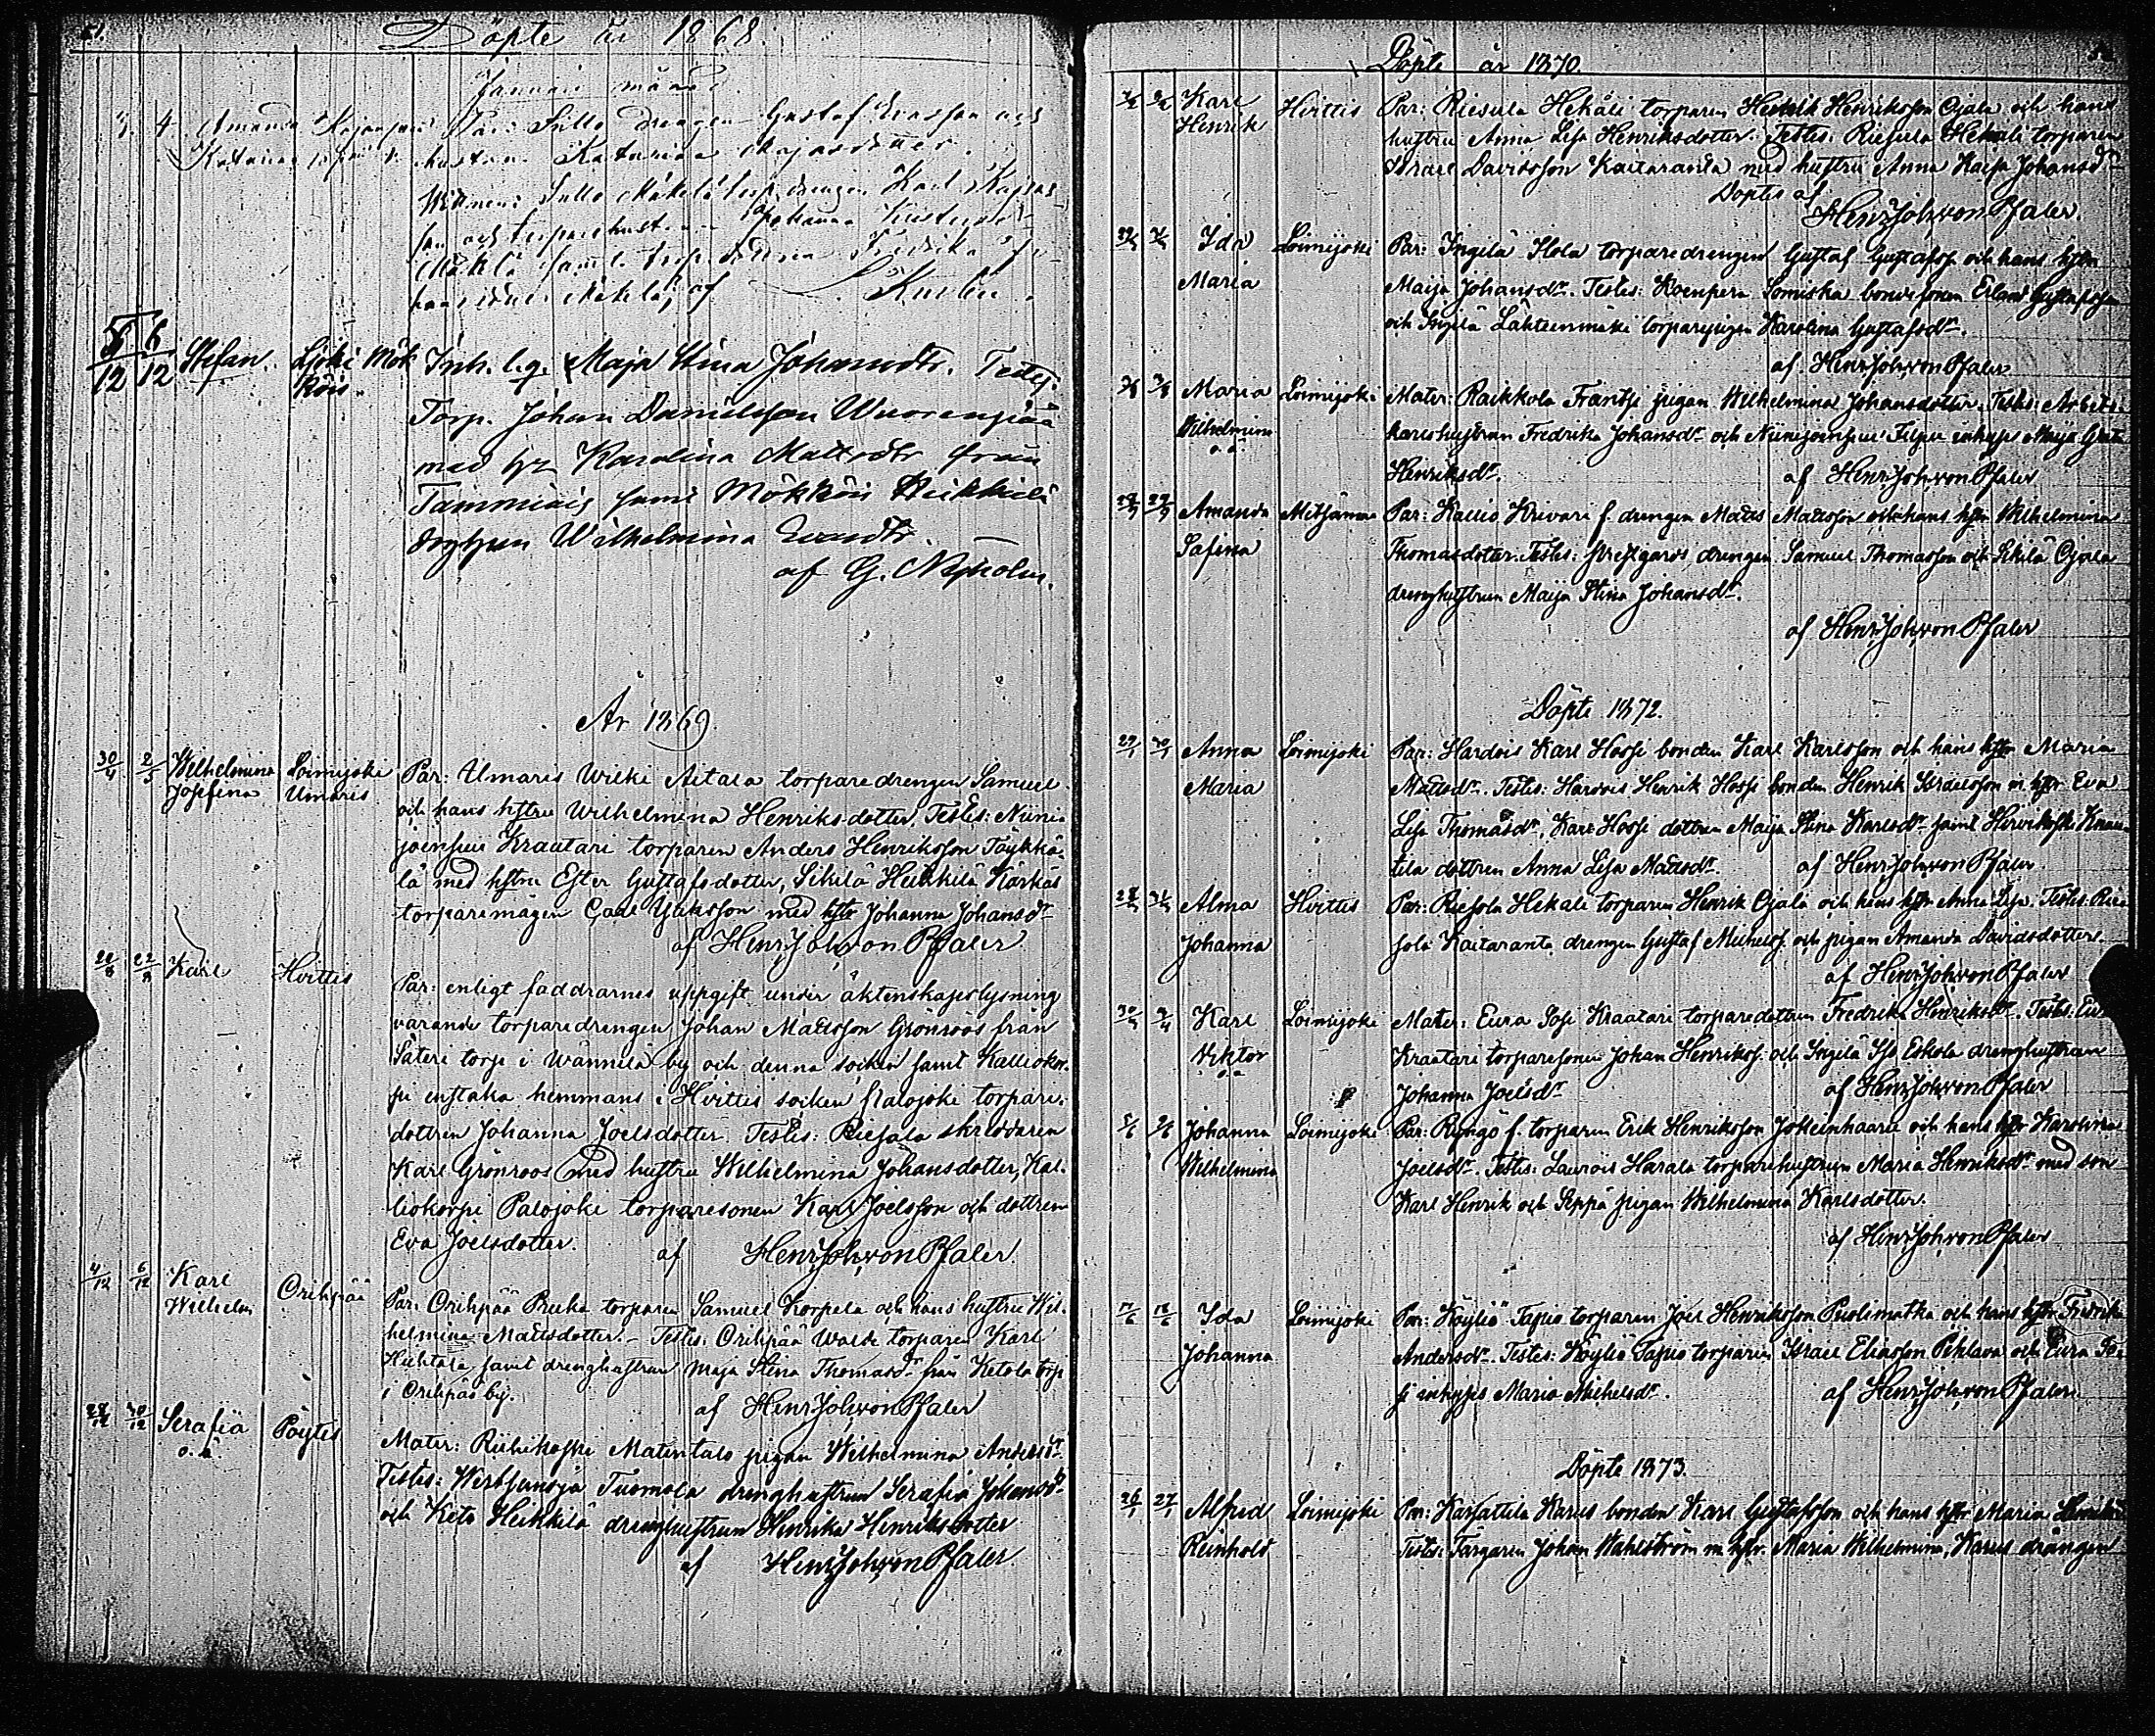 51.
Döpte år 1868.
Januari månad
3. 4. Amanda Par: Sullo drengen Gustaf och
Katarina hustrun Katarina
Wittnen: Sullo Mäkelä torp. drengen Karl Kajas-
son och torparehustrun Johanna
Mäkelä samt torp. dottren Fredrika
Mäkelä, af
5/12 6/12 Stefan. Ljoki Mök Inh. lig. Maja Stina Johansdtr. Testes:
köis. Torp. Johan Danielsson Wuorenpää
med h. Karolina Mattsdtr från
Tammiais samt Mökköis Heikkilä
drghun Wilhelmina
af G. Nyholm.
År 1869.
30/4 2/5 Wilhelmina Loimijoki Par: Umaris Wilki Aitala torparedrengen Samuel
Josefina Umaris och hans hstru Wilhelmina Henriksdotter. Testes: Niini-
joensuu Kraatari torparen Anders Henriksson Töykkä-
lä med hstru Ester Gustafsdotter, Sikilä Heikkilä Kärkäs
torparemågen Carl Jakssson med hstr Johanna Johansdr
af Henr. Joh. von Pfaler
20/8 22/8 Karl Hvittis Par: enligt faddrarnes uppgift under äktenskapslysning
varande torparedrengen Johan Mattsson Grönroos från
Säteri torp i Wännilä by och denna socken samt Kalliokor-
pi enstaka hemmans i Hvittis socken Palojoki torpare-
dottren Johanna Joelsdotter. Testes: Riesala skreddaren
Karl Grönroos med hustru Wilhelmina Johansdotter, Kal-
liokorpi Palojoki torparesonen Karl Joelsson och dottren
Eva Joelsdotter. af Henr. Joh. von Pfaler.
4/12 6/12 Karl Orihpää Par: Orihpää Prukä torparen Samuel Korpela och hans hustru Wil-
Wilhelm helmina Mattsdotter. – Testes: Orihpää Walde torparen Karl
Huhtala samt drenghustrun Maja Stina Thomasdr från Ketola torp
i Orihpää by. af Henr. Joh. von Pfaler
28/12 30/12 Serafia Pöytis Mater: Riihikoski Matintalo pigan Wilhelmina Andersdr.
o.ä. Testes: Wirtsanoja Tuomola drenghustrun Serafia Johansdr
och Keto Heikkilä drenghustrun Henrika Henriksdotter
af Henr. Joh. von Pfaler
Döpte år 1870.
Karl Hvittis Par: Riesula Hekäli torparen Henrik Henriksson Ojala och hans
Henrik hustru Anna Lisa Henriksdotter. Testes: Riesula Hekäli torparen
Israel Davidsson Kaitaranta med hustru Anna Kaisa Johansdr
Döptes af
Henr. Joh. von Pfaler.
Ida Loimijoki Par: Ingilä Hola torparedrengen Gustaf Gustafss. och hans hstru
Maria Maija Johansdr. Testes: Koenperä Somiska bondesonen Erland Gustafsson
och Ingilä Lähteenmäki torparepigan Karolina Gustafsdr.
af. Henr. Joh. von Pfaler
Maria Loimijoki Mater: Raikkola Frantsi pigan Wilhelmina Johansdotter. Testes: Arbets-
Wilhelmina karlshustrun Fredrika Johansdr och Niinijoensuu Filppu inhyses Maija Greta
o.ä. Henriksdr. af Henr. Joh. von Pfaler
Amanda Metsämaa Par: Kallio Krivari f. drengen Matts Mattsson och hans hstru Wilhelmina
Safina Thomasdotter. Testes: Prestgårds drengen Samuel Thomasson och Sikilä Ojala
drenghustrun Maija Stina Johansdr.
af Henr. Joh. von Pfaler
Döpte 1872.
29/1 30/1 Anna Loimijoki Par: Hardois Karl Hossi bonden Karl Karlsson och hans hstru Maria
Maria Mattsdr. Testes: Hardois Henrik Hossi bonden Henrik Israelsson m. hstr Eva
Lisa Thomasdr, Karl Hossi dottren Maija Stina Karlsdr samt Hirvikoski
tila dottren Anna Lisa Mattsdr. af Henr. Joh. von Pfaler
Alma Hvittis Par: Riesola Hekäli torparen Henrik Ojala och hans hstru Anna Lisa. Testes: Rie-
Johanna sola Kaitaranta drengen Gustaf Michelss. och pigan Amanda Davidsdotter.
af Henr. Joh. von Pfaler
Karl Loimijoki Mater: Eura Sosi Kraatari torparedottren Fredrika Henriksdr. Testes:
Viktor Kraatari torparesonen Johan Henrikss. och Ingilä Iso Eskola drenghustrun
o.ä. Johanna Joelsdr af Henr. Joh. von Pfaler
Johanna Loimijoki Par: Ryngö f. torparen Erik Henriksson Jokleinhaaru och hans hstr Karolina
Wilhelmina Joelsdr. Testes: Laurois Harala torparehustrun Maria Henriksdr med son
Karl Henrik och Seppä pigan Wilhelmina Karlsdotter.
af Henr. Joh. von Pfaler
Ida Loimijoki Par: Köyliö Tapio torparen Joel Henriksson Puolimatka och hans hstru Fredrika
Johanna Andersdr. Testes: Köyliö Tapio torparen Israel Eliasson Pihlava och Eura So-
si inhyses Maria Michelsdr. af Henr. Joh. von Pfaler.
Döpte 1873.
26/1 27/1 Alfred Loimijoki Par: Karsattila Karus bonden Karl Gustafsson och hans hstr Maria
Reinhold Testes: Färgaren Johan Wahlström m. hstr. Maria Wilhelmina, Karus drängen